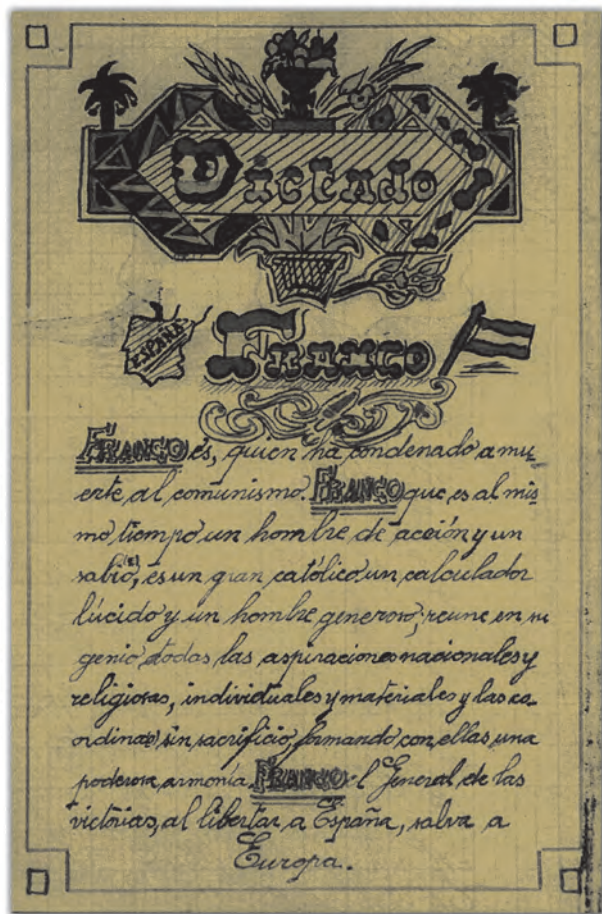 Dictado
ESPAÑA
FRANCO
FRANCO es, quien ha condenado a mu-
erte al comunismo. FRANCO que, es al mis
mo tiempo un hombre de acción y un
sabio, es un gran católico un calculador
lúcido y un hombre generoso; reune en su
genio todas las aspiraciones nacionales y
religiosas, individuales y materiales y las co-
ordina sin sacrificio, formando con ellas una
poderosa armonía. FRANCO el General de las
victorias, al libertar a España, salva a
Europa.